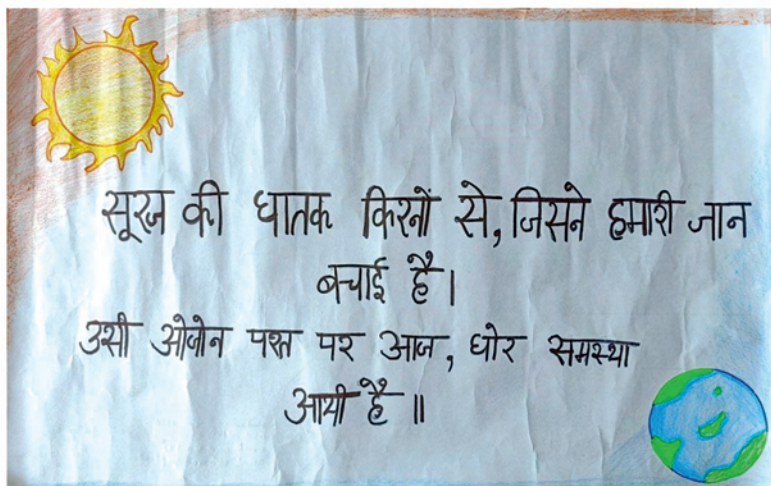 सूरज की घातक किरनों से, जिसने हमारी जान
बचाई है।
उसी ओजोन परत पर आज, घोर समस्या
आयी है॥